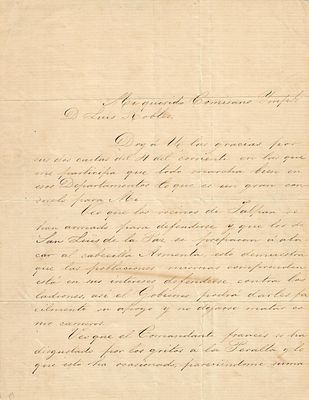 Mi querido Comisario Impl.
D. Luis Robles.
Doy á V. las gracias por
sus dos cartas del 4 del corriente en las que
me participa que todo marcha bien en
esos Departamentos lo que es un gran con
suelo para Mi.
Veo que los vecinos de Jalpan se
han armado para defenderse y que los de
San Luis de la Paz se preparan á ata
car al cabecilla Armenta, esto demuestra
que las poblaciones mismas comprenden
está en sus intereses defenderse contra los
ladrones, así el Gobierno podrá darles fa
cilmente su apoyo y no dejarse matar co
mo carneros.
Veo que el Comandante frances se ha
disgustado por los gritos á la Peralta y lo
que esto ha ocasionado, pareciendome suma